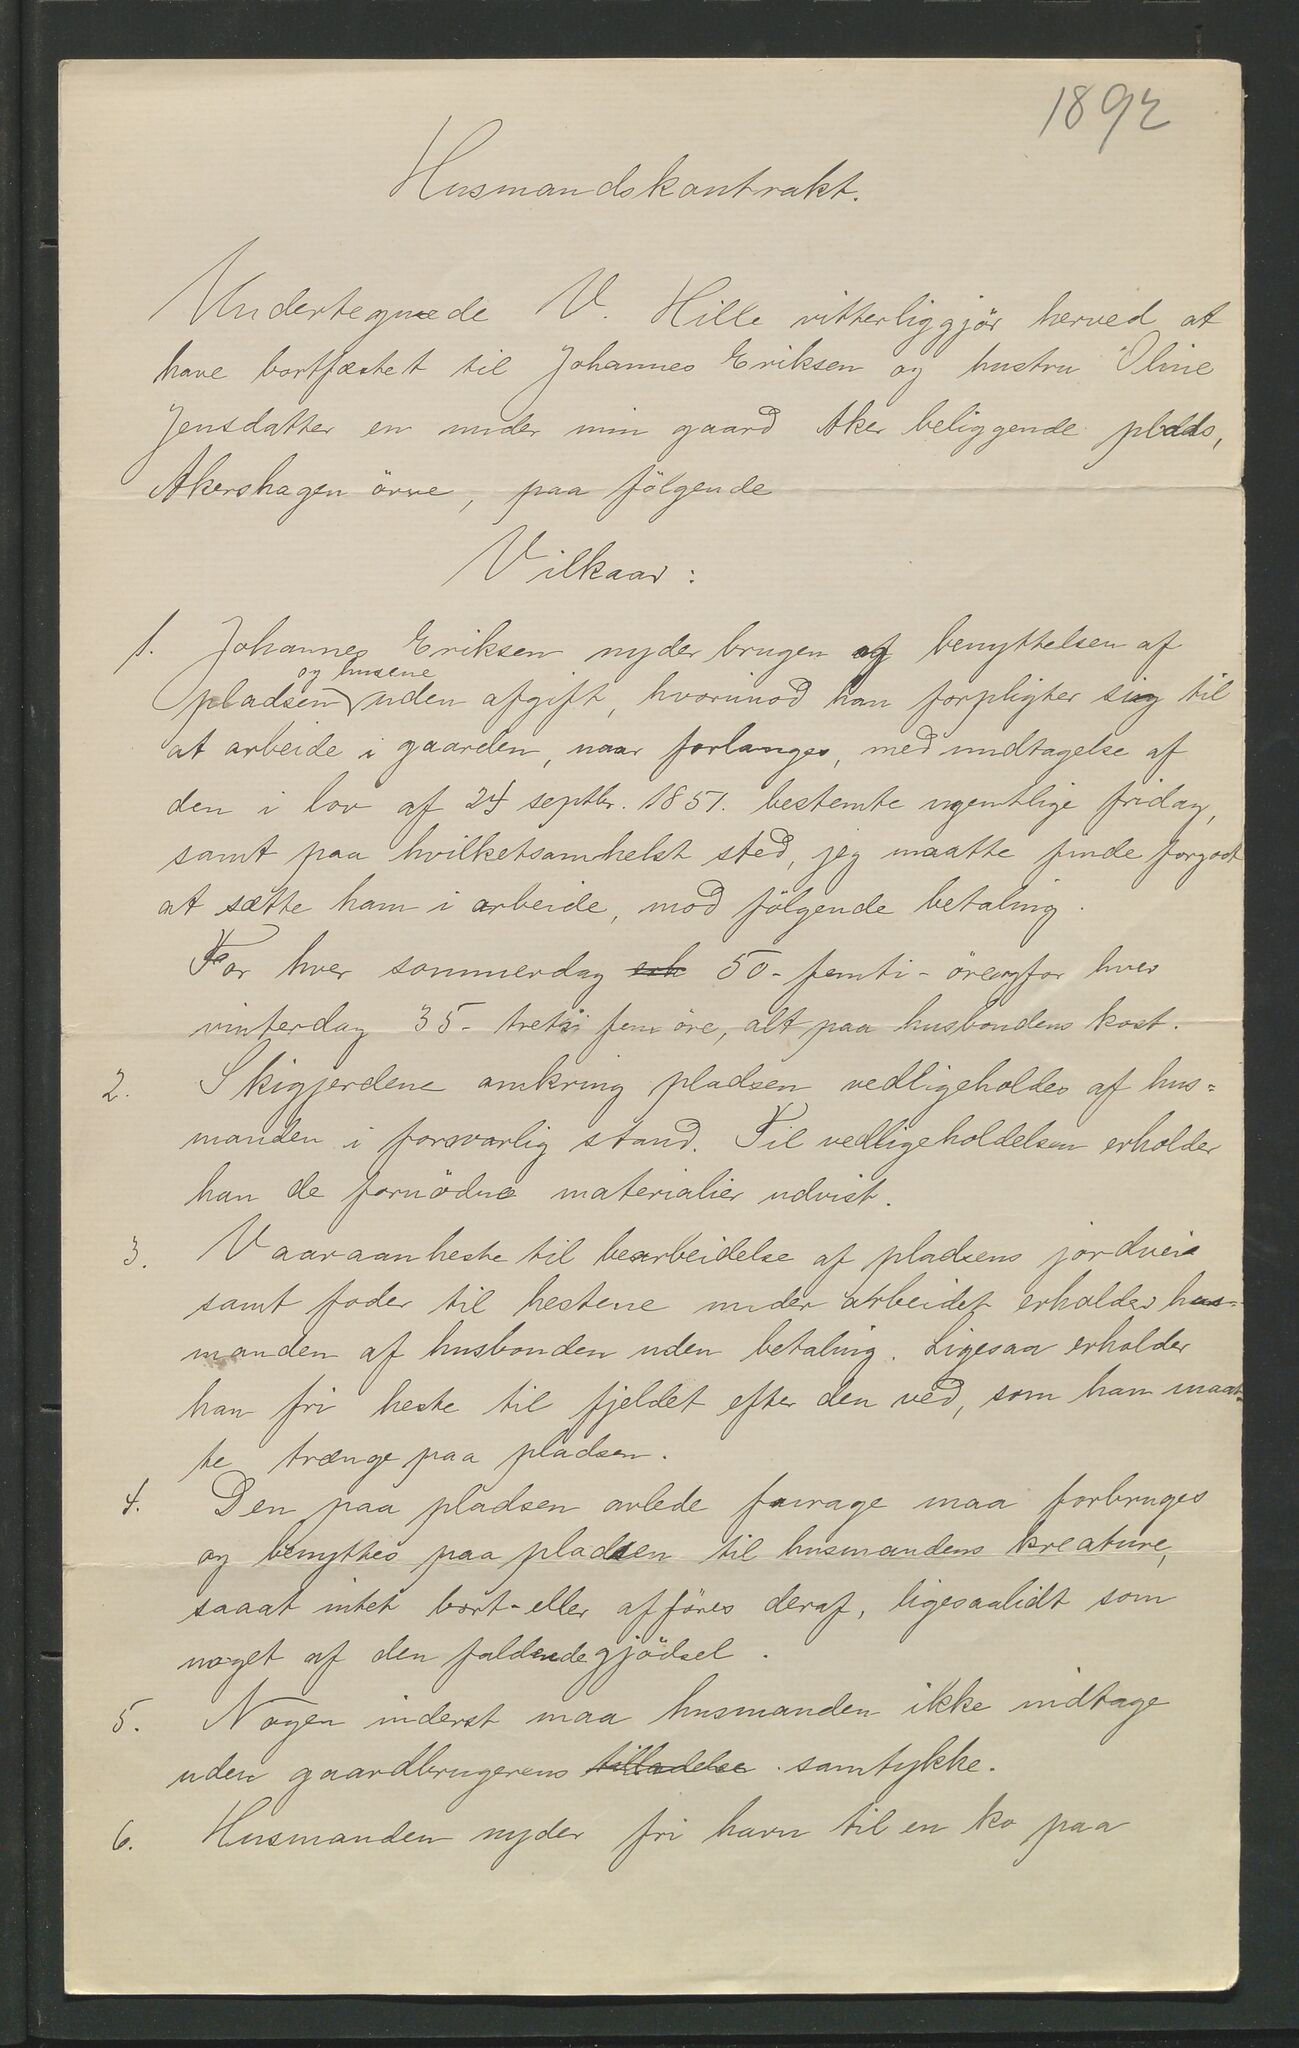 1892
Husmandskontrakt.
Undertegnede V. Hille vitterliggjör herved at
have bortfæstet til Johannes Eriksen og hustru Oline
Jensdatter en under min gaard Aker beliggende plads,
Akershagen övre, paa fölgende
Vilkaar:
1. Johannes Eriksen nyder brugen og benyttelsen af
og husene
pladsen uden afgift, hvorimod han forpligter sig til
at arbeide i gaarden, naar forlanges, med undtagelse af
den i lov af 24 septbr. 1851. bestemte ugentlige fridag,
samt paa hvilketsomhelst sted, jeg maatte finde forgodt
at sætte ham i arbeide, mod fölgende betaling.
For hver sommerdag 50 - femti - öre og for hver
vinterdag 35 - treti fem öre, alt paa husbondens kost.
2. Skigjerdene omkring pladsen vedligeholdes af hus=
manden i forsvarlig stand. Til vedligeholdelsen erholder
han de fornödne materialier udvist.
3. Vaaraanheste til bearbeidelse af pladsens jordvei
samt foder til hestene under arbeidet erholder hus=
manden af husbonden uden betaling. Ligesaa erholder
han fri heste til fjeldet efter den ved, som han maat=
te trænge paa pladsen.
4. Den paa pladsen avlede fourage maa forbruges
og benyttes paa pladsen til husmandens kreature,
saaat intet bort- eller afföres deraf, ligesaalidt som
noget af den faldende gjödsel.
5. Nogen inderst maa husmanden ikke indtage
uden gaardbrugerens tilladelse samtykke.
6. Husmanden nyder fri havn til en ko paa